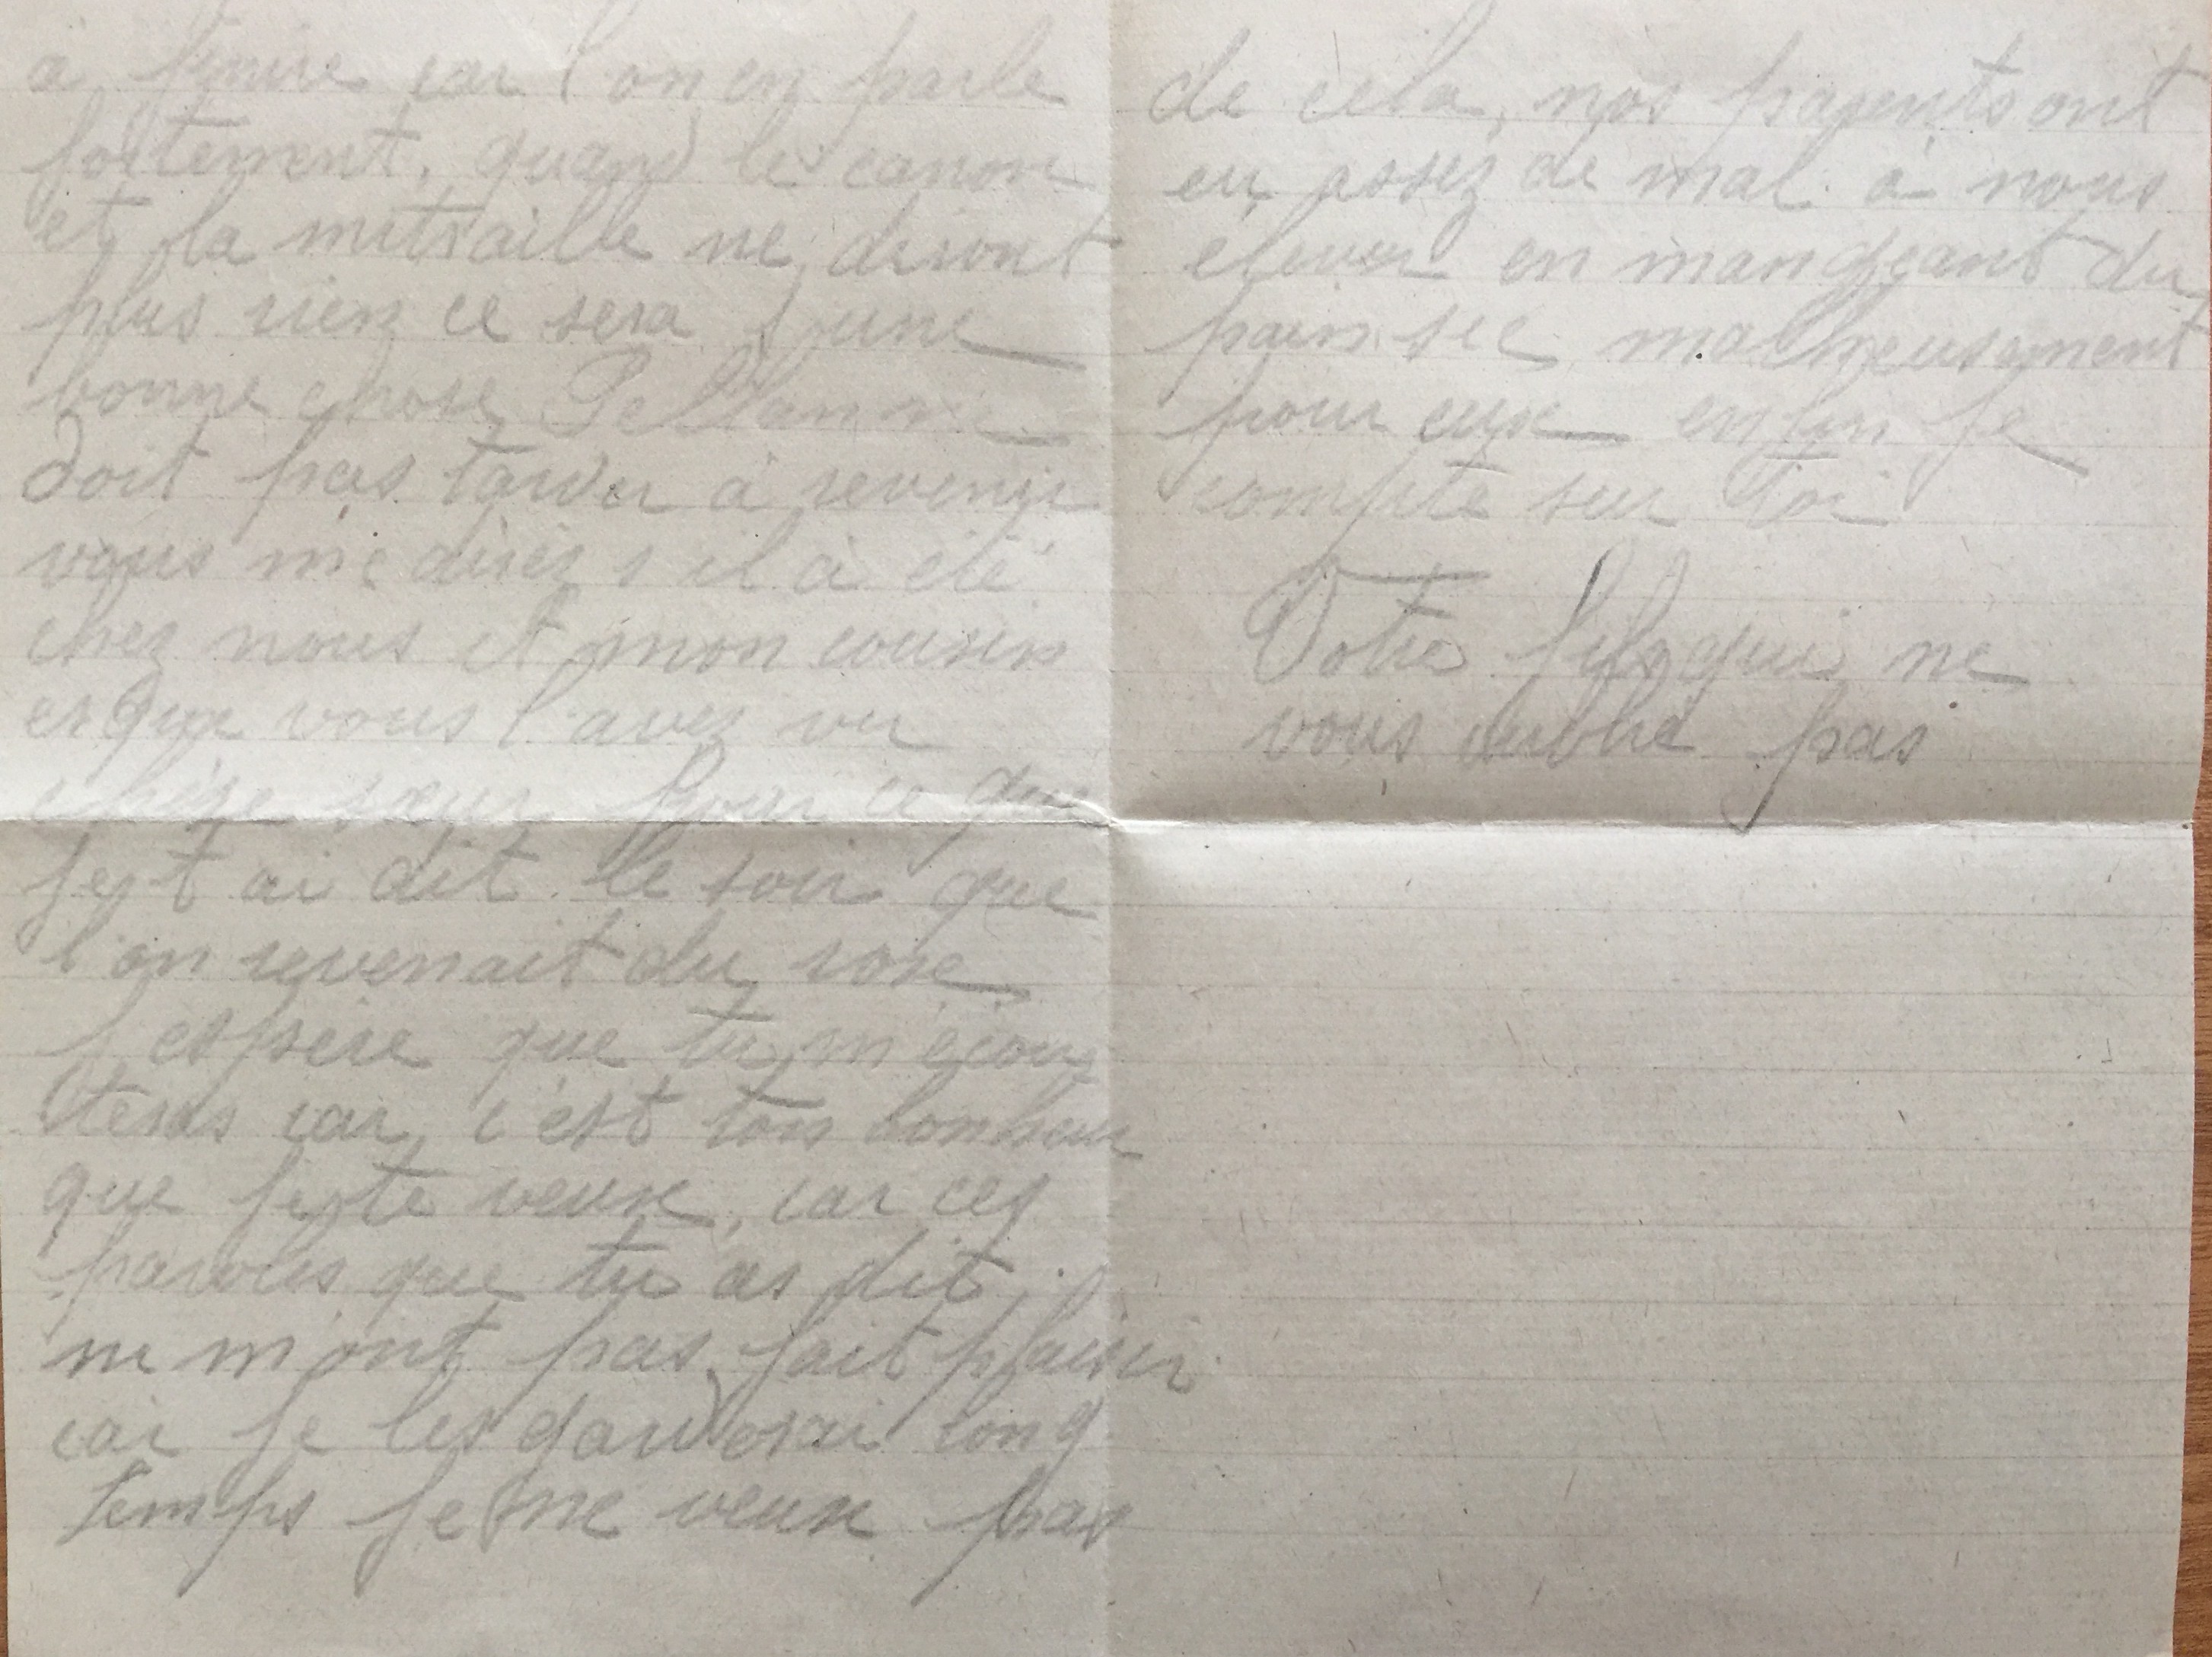 à finire car l'on en parle
fortement, quand le canon
et la mitraille ne diront
plus rien ce sera une
bonne chose
doit pas tarder à revenir
vous me direz s il à été
chez nous et mon cousin
esque vous l'avez vu
chère sœur Pour ce que
je t ai dit le soir que
l'on revenait du
j espère que tu m écou
teras car c'est ton bonheur
que je te veux, car ces
paroles que tu as dit
ne m'ont pas fait plaisir
car je les garderai long
temps je ne veux pas
de cela, nos parents ont
eu assez de mal à nous
élever en mangeant du
pain sec malheusement
pour eux enfin je
compte sur toi
Votre fils qui ne
vous oublie pas